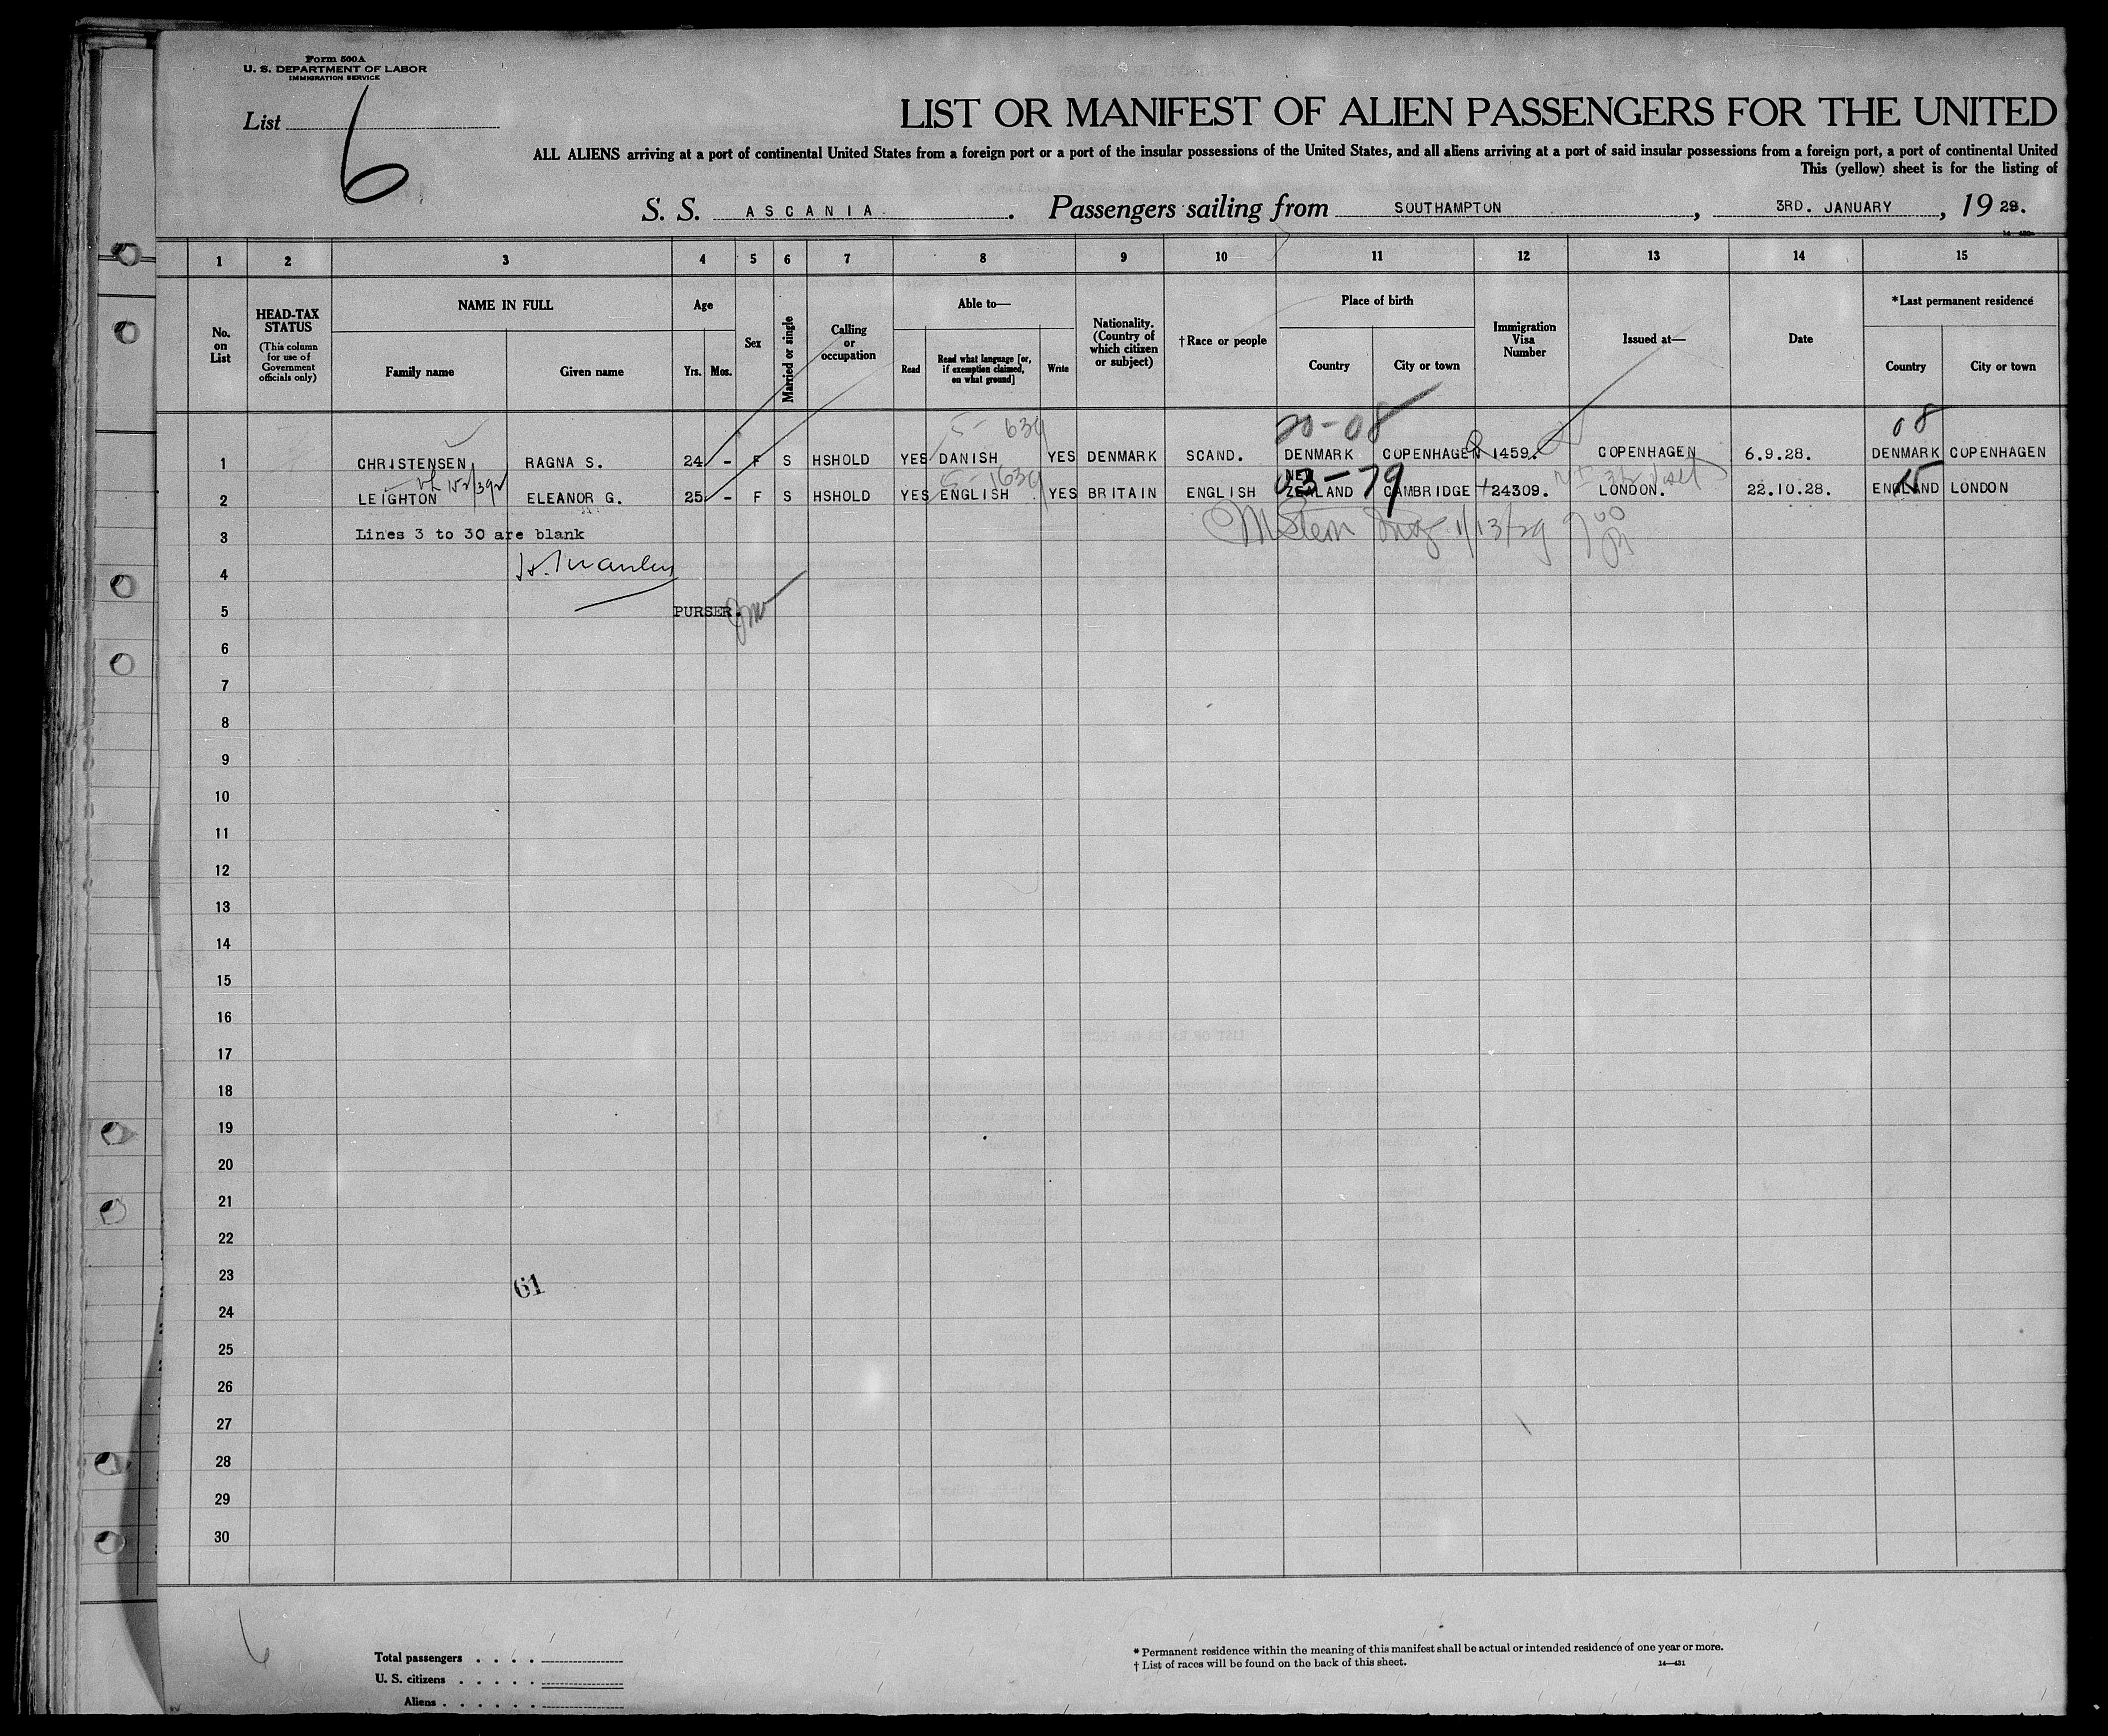 Form 500A
U. S. DEPARTMENT OF LABOR
IMMIGRATION SERVICE
List 6
LIST OR MANIFEST OF ALIEN PASSENGERS FOR THE UNITED
ALL ALIENS arriving at a port of continental United States from a foreign port or a port of the insular possessions of the United States, and all aliens arriving at a port of said insular possessions from a foreign port, a port of continental United
This (yellow) sheet is for the listing of
S. S. ASCANIA. Passengers sailing from SOUTHAMPTON, 3RD. JANUARY, 1929.
1 2 3 4 5 6 7 8 9 10 11 12 13 14 15
No. on List
HEAD-TAX STATUS (This column for use of Government officials only)
NAME IN FULL
Family name
Given name
Age
Yrs.
Mos.
Sex
Married or single
Calling or occupation
Able to—
Read
Read what language [or, if exemption claimed, on what ground]
Write
Nationality. (Country of which citizen or subject)
†Race or people
Place of birth
Country
City or town
Immigration Visa Number
Issued at—
Date
*Last permanent residence
Country
City or town
5- 639 20-08 08
1 CHRISTENSEN RAGNA S. 24 - F S HSHOLD YES DANISH YES DENMARK SCAND. DENMARK COPENHAGEN 1459. COPENHAGEN 6.9.28. DENMARK COPENHAGEN
03-79 15
2 LEIGHTON ELEANOR G. 25 - F S HSHOLD YES ENGLISH YES BRITAIN ENGLISH NEW ZEALAND CAMBRIDGE 24309. LONDON. 22.10.28. ENGLAND LONDON
3 Lines 3 to 30 are blank
1/13/29
4
5 PURSER.
6
7
8
9
10
11
12
13
14
15
16
17
18
19
20
21
22
23
61
24
25
26
27
28
29
30
Total passengers . . . .
U. S. citizens . . . . .
Aliens . . . . . .
* Permanent residence within the meaning of this manifest shall be actual or intended residence of one year or more.
† List of races will be found on the back of this sheet.
14—431